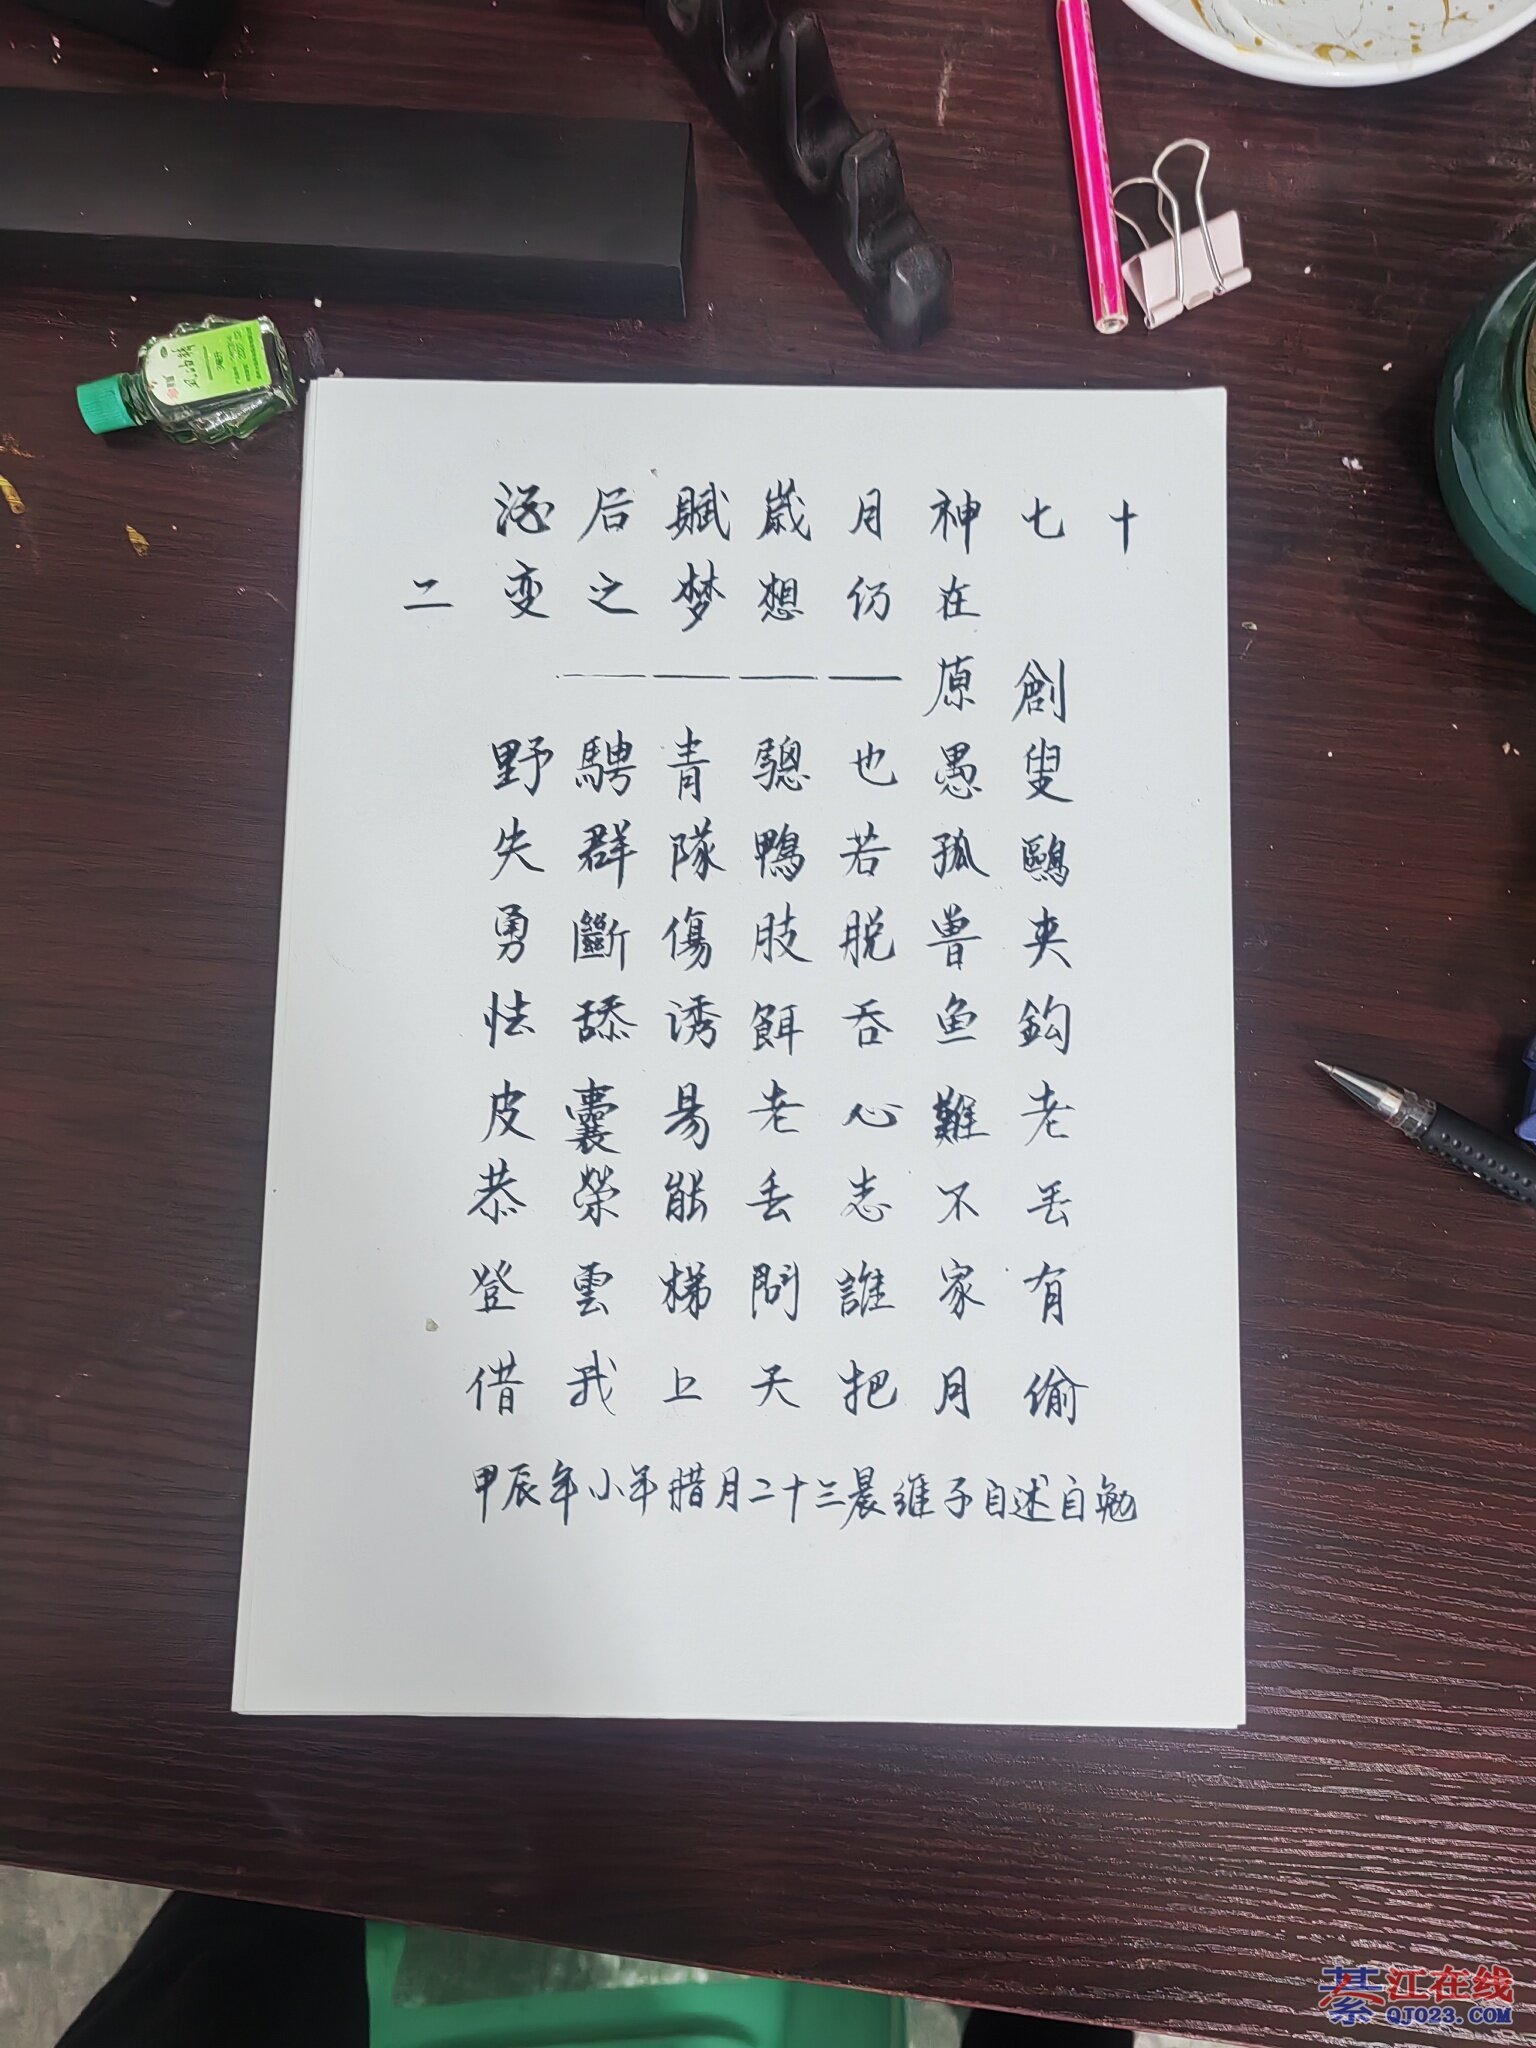 后賦歲月神七十
二变之梦想仍在
————原創
野騁青驄也愚叟
失群隊鴨若孤鷗
勇斷傷肢脱曽夹
怯舔诱餌吞鱼鈎
皮囊易老心難老
恭榮能丢志不丢
登雲梯問誰家有
借我上天把月偷
甲辰年小年腊月二十三晨维子自述自勉
綦江在线
QJ023.COM